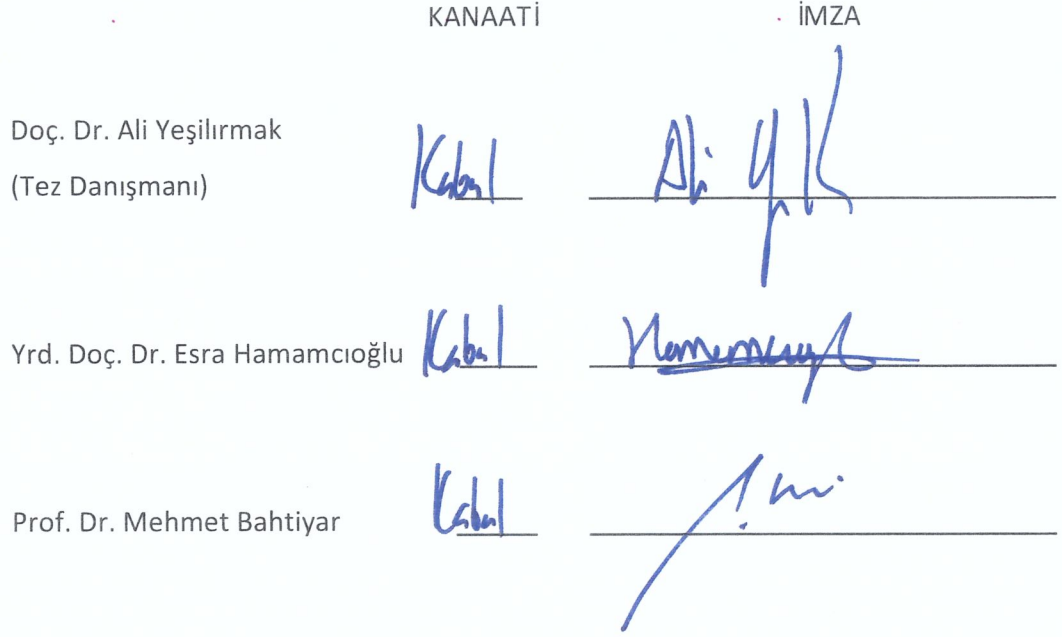 KANAATİ İMZA
Doç. Dr. Ali Yeşilırmak
(Tez Danışmanı) Kabul Ali
Yrd. Doç. Dr. Esra Hamamcıoğlu Kabul
Prof. Dr. Mehmet Bahtiyar Kabul